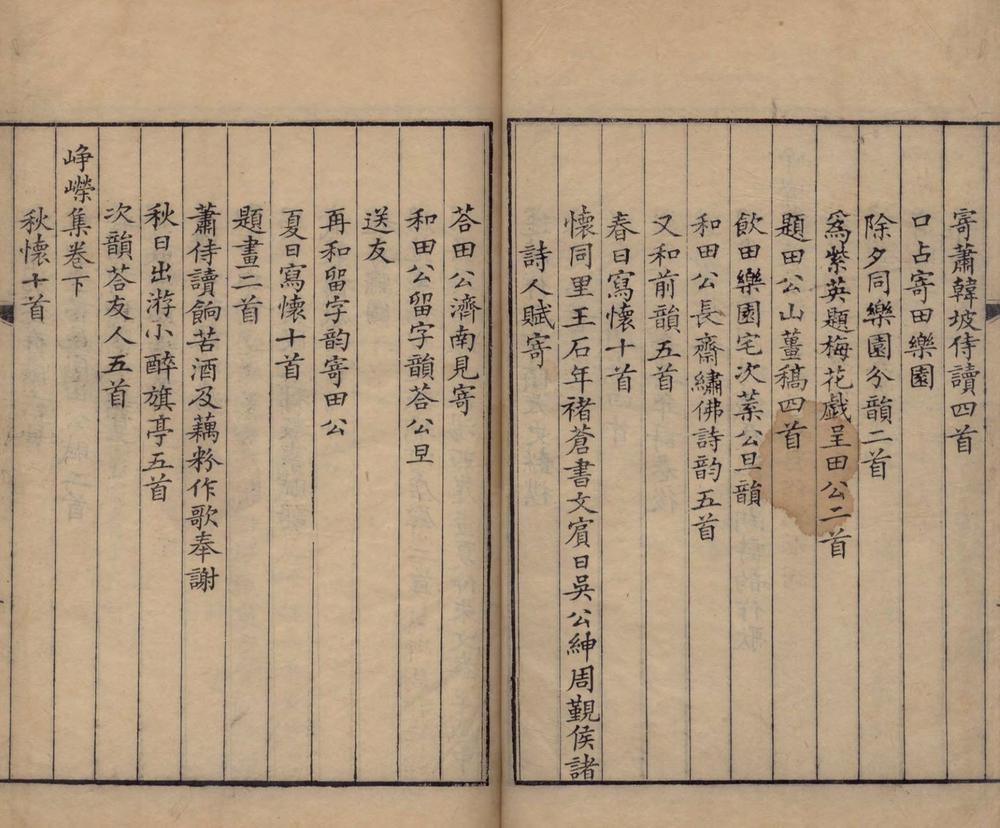 寄蕭韓坡侍讀四首
口占寄田樂園
除夕同樂園分韻二首
爲紫英題梅花戲呈田公二首
題田公山薑稿四首
飲田樂園宅次葉公旦韻
和田公長齋繡佛詩韵五首
又和前韻五首
春日寫懷十首
懷同里王石年褚蒼書文賓日吳公紳周覲侯諸
詩人賦寄
荅田公濟南見寄
和田公留字韻荅公旦
送友
再和留字韵寄田公
夏日寫懷十首
題畫二首
蕭侍讀餉苦酒及藕粉作歌奉謝
秋日出游小醉旗亭五首
次韻荅友人五首
崢嶸集卷下
秋懷十首